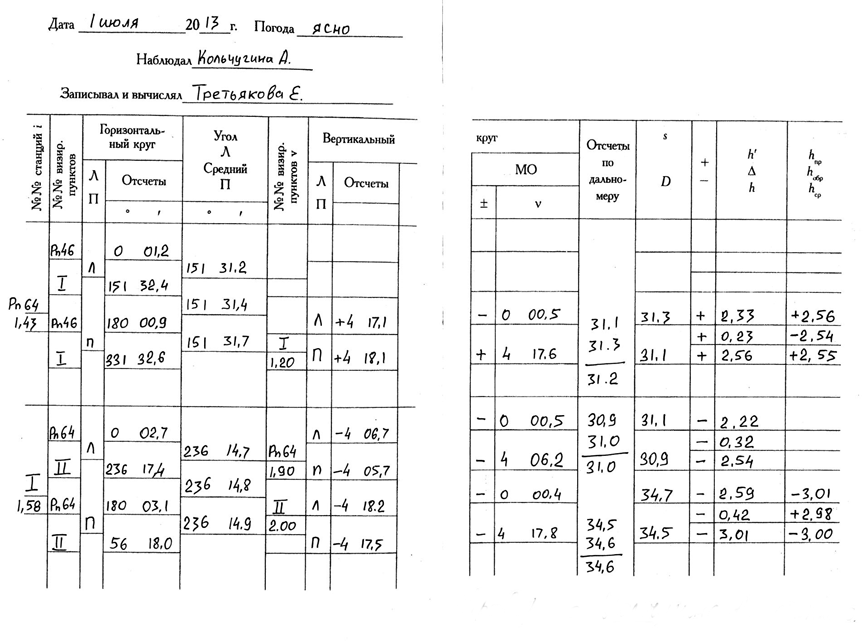 Дата 1 июля 2013 г. Погода ясно
Наблюдал Кольчугина А.
Записывал и вычислял Третьякова Е.
№№ станций i
№№ визир. пунктов
Горизонталь-
ный круг
Л
П
Отсчеты
° ′
Угол
Л
Средний
П
° ′
№№ визир. пунктов v
Вертикальный
Л
П
Отсчеты
Рп46 0 01,2
Л 151 31.2
I 151 32,4
Рп64 151 31,4
1,43 Рп46 180 00,9 Л +4 17,1
П 151 31,7 I
I 331 32,6 1,20 П +4 18,1
Рп64 0 02,7 Л -4 06,7
Л 236 14,7 Рп64
II 236 17,4 1,90 П -4 05,7
I 236 14,8
1,58 Рп64 180 03,1 II Л -4 18.2
П 236 14.9 2.00
II 56 18.0 П -4 17,5
круг
МО
± ν
Отсчеты
по
дально-
меру
s
D
+
−
h′
Δ
h
hпр
hобр
hср
− 0 00.5 31.1 31.3 + 2,33 +2,56
31.3 + 0,23 -2,54
+ 4 17.6 31,1 + 2,56 +2,55
31.2
− 0 00,5 30,9 31,1 − 2,22
31,0 − 0,32
− 4 06,2 31,0 30,9 − 2,54
− 0 00,4 34,7 − 2,59 −3,01
34,5 − 0,42 +2,98
− 4 17,8 34,6 34.5 − 3,01 −3,00
34,6